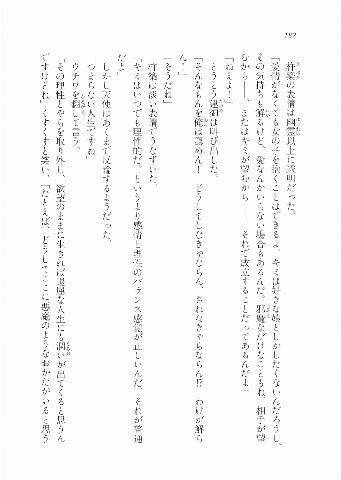 182
杵築の表情は幽霊以上に透明だった。
「愛情がなくても女の子を抱くことはできるよ。キミは好きな娘としかしたくないんだろうし、
その気持ちも解るけど、愛なんかいらない場合もあるんだ。邪魔なだけなこともね。相手が望
むから――、またはキミが望むから――、それで成立することだってあるんだよ」
「ねえよ！」
とうとう建御は叫び出した。
「そんなもんを俺は認めん！　どうしてしなきゃならん、されなきゃならん!?　わけが解ら
ん！」
「そうだね」
杵築は淡い表情でうなずいた。
「キミはいつでも理性的だ。というより感情と理性のバランス感覚が正しいんだ。それが普通
だよ」
しかし天使はあくまで反論するようだった。
「つまらない人生ですね」
ウチワを翻して言う。
「その理性とやらを取り外し、欲望のままに生きれば退屈な人生にも潤いが出てくると思うん
ですけどね」くすくすと笑い、「たとえば、どうしてここに悪魔のようなおかたがいると思う